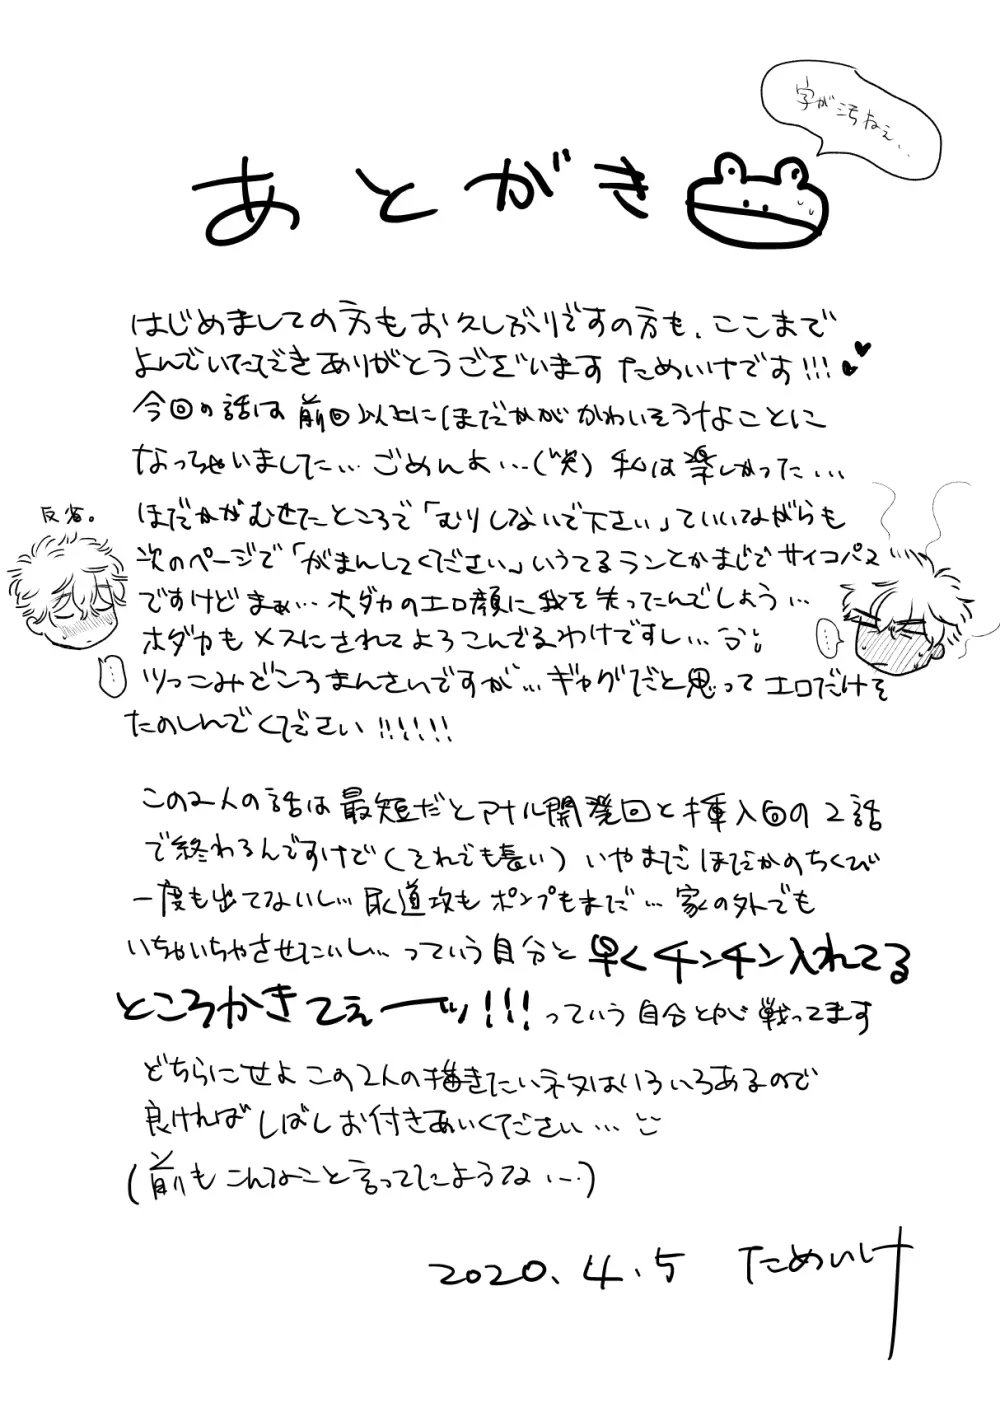 字が汚ねぇ...
あとがき
はじめましての方もお久しぶりですの方も、ここまで
よんでいただきありがとうございます ためいけです!!!
今回の話は前回以上にほだかがかわいそうなことに
なっちゃいました... ごめんよ...(笑) 私は楽しかった...
反省。
ほだかがむせたところで「むりしないで下さい」っていいながらも
次のページで「がまんしてください」いうてるランとかまじでサイコパス
ですけどまぁ... ホダカのエロ顔に我を失ってたんでしょう...
ホダカもメスにされてよろこんでるわけですし...
ツっこみどころまんさいですが... ギャグだと思ってエロだけを
たのしんでください!!!!!!
この2人の話は最短だとアナル開発回と挿入回の2話
で終わるんですけど(それでも長い) いやまだほだかのちくび
一度も出てないし... 尿道攻もポンプもまだ... 家の外でも
いちゃいちゃさせたいし... っていう自分と 早くチンチン入れてる
ところかきてぇーッ!!! っていう自分とが戦ってます
どちらにせよこの2人の描きたいネタはいろいろあるので
良ければしばしお付きあいください...
(前もこんなこと言ってたような...)
2020.4.5 ためいけ